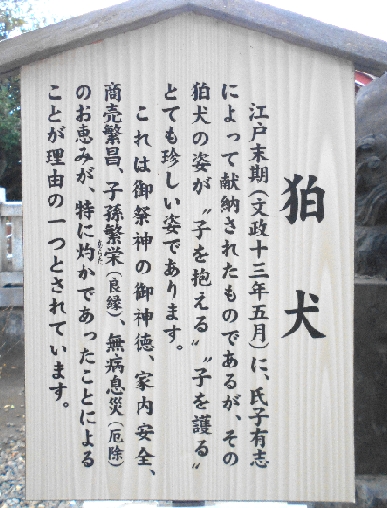 狛犬
江戸末期(文政十三年五月)に、氏子有志
によって献納されたものであるが、その
狛犬の姿が〝子を抱える〟〝子を護る〟
とても珍しい姿であります。
これは御祭神の御神徳、家内安全、
商売繁昌、子孫繁栄(良縁)、無病息災(厄除)
のお恵みが、特に灼かであったことによる
ことが理由の一つとされています。